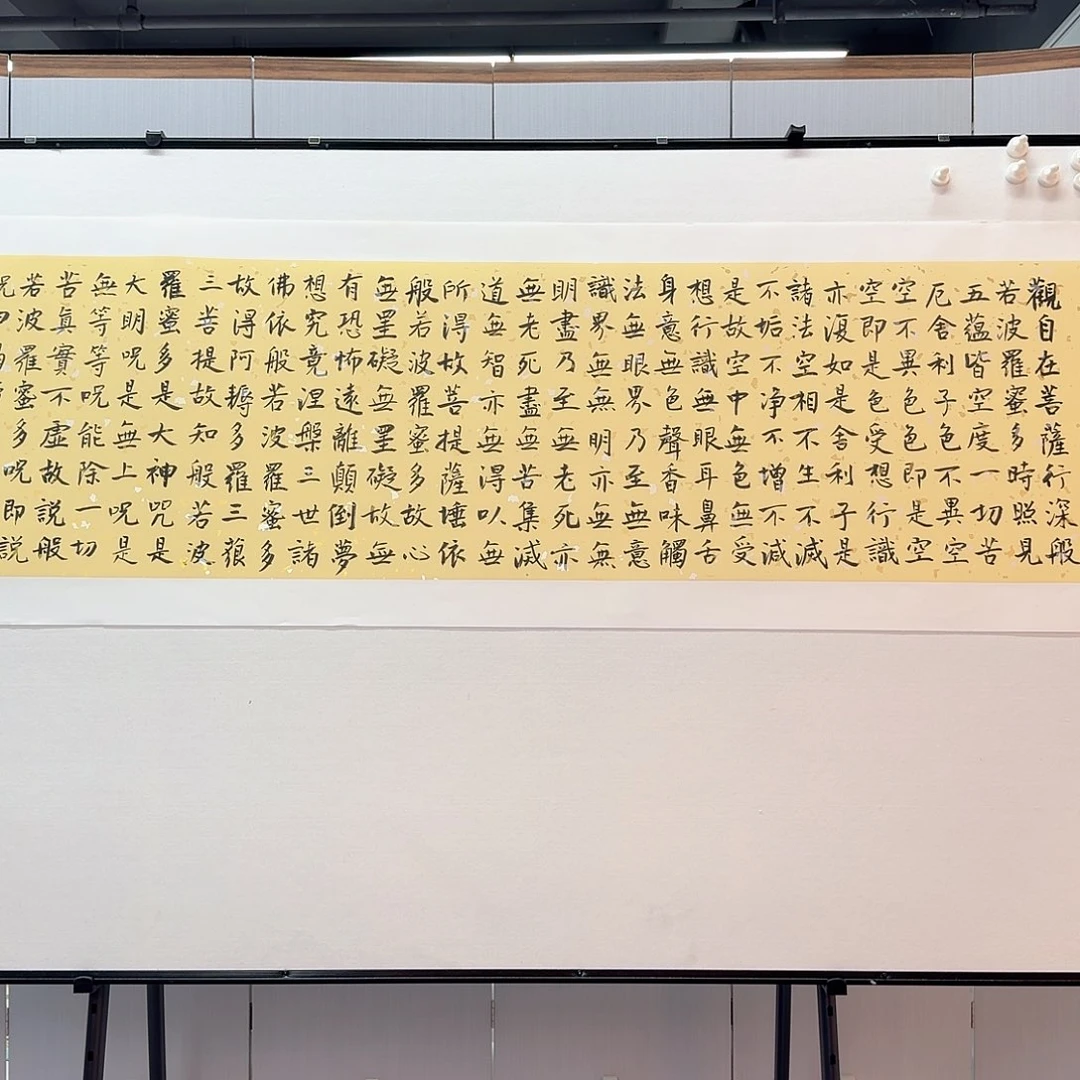 觀自在菩薩行深般
若波羅蜜多時照見
五蘊皆空度一切苦
厄舍利子色不異空
空不異色色即是空
空即是色受想行識
亦復如是舍利子是
諸法空相不生不滅
不垢不净不增不減
是故空中無色無受
想行識無眼耳鼻舌
身意無色聲香味觸
法無眼界乃至無意
識界無無明亦無無
明盡乃至無老死亦
無老死盡無苦集滅
道無智亦無得以無
所得故菩提薩埵依
般若波羅蜜多故心
無罣礙無罣礙故無
有恐怖遠離顛倒夢
想究竟涅槃三世諸
佛依般若波羅蜜多
故得阿耨多羅三藐
三菩提故知般若波
羅蜜多是大神咒是
大明呪是無上呪是
無等等呪能除一切
苦真實不虛故説般
若波羅蜜多呪即説